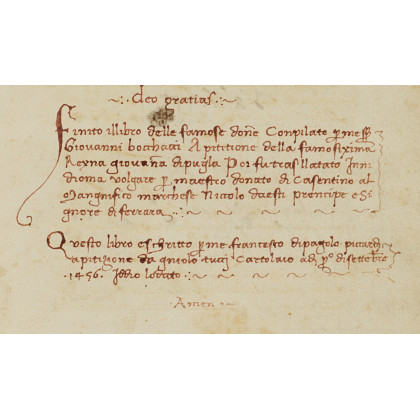 deo gratias
Finito illibro delle famose done Compilato p messer
Giovanni bocchacci A pititione della famosixima
Reyna giovana dipugla Poi fu traslatato Inni
dioma volgare p maestro donato di Casentino al
Mangnifico marchese Nicolo daesti prencipe e Si
gnore di ferrara
Questo libro e schritto p me francesco dipagolo picardi
apititione da gniolo tucci Cartolaio adi po disettebre
1456 Iddio lodato
Amen